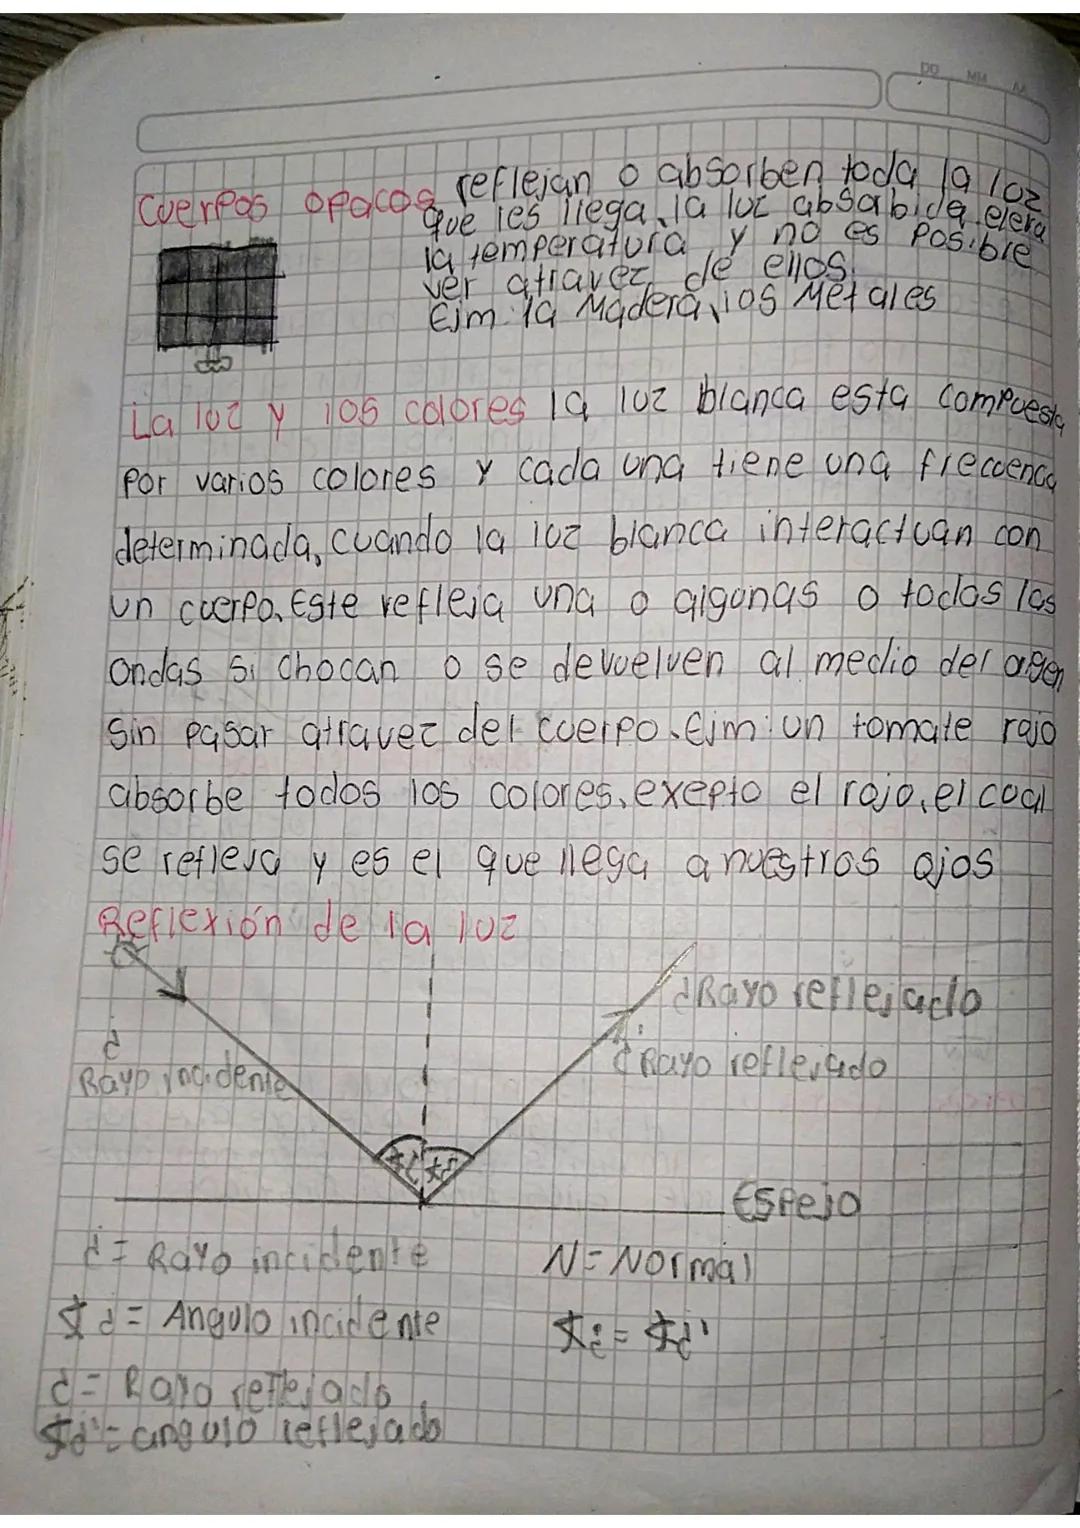 DD MM AA
Cuerpos opacos reflejan o absorben toda la luz
que les llega, la luz absabida eleva
la temperatura y no es posible
ver atravez de ellos.
Ejm: la Madera, los Metales
La luz y los colores la luz blanca esta compuesta
por varios colores y cada una tiene una frecuencia
determinada, cuando la luz blanca interactuan con
un cuerpo, Este refleja una o algunas o todas las
ondas si chocan o se devuelven al medio del origen
sin pasar atravez del cuerpo. Ejm: un tomate rojo
absorbe todos los colores, exepto el rojo, el cual
se refleja y es el que llega a nuestros ojos
Reflexión de la luz
Rayo reflejado
i
i' Rayo reflejado
Rayo incidente
∡i ∡i'
Espejo
i = Rayo incidente N = Normal
∡i = Angulo incidente ∡i = ∡i'
i = Rayo reflejado
∡i' = angulo reflejado